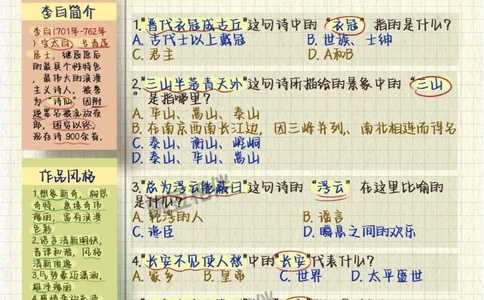 李白简介
李白(701年-762年)
字太白，号青莲
居士，继屈原后
的最具个性特色
、最伟大的浪漫
主义诗人，被誉
为"诗仙"因附
逆罪名被流放夜
郎，
现存诗900余首。
作品风格
1.想象新奇，构思
奇特，意境奇伟
瑰丽，富有浪漫
色彩
2.语言清新明快，
音律和谐，风格
清新俊逸
1."晋代衣冠成古丘"这句诗中的"衣冠"指的是什么?
A. 古代士以上戴冠
B. 世族、士绅
C. 君主
D. A和B
2."三山半落青天外"这句诗所描绘的景象中的"三山
"是指哪里?
A. 华山、嵩山、泰山
B. 在南京西南长江边，因三峰并列、南北相连而得名
C. 泰山、衡山、崆峒
D. 泰山、华山、嵩山
3."总为浮云能蔽日"这句诗的"浮云"在这里比喻的
是什么?
A. 轻浮的人
B. 谣言
C. 谗臣
D. 瞬息之间的欢乐
4."长安不见使人愁"中的"长安"代表什么?
A. 家乡
B. 皇帝
C. 世界
D. 太平盛世